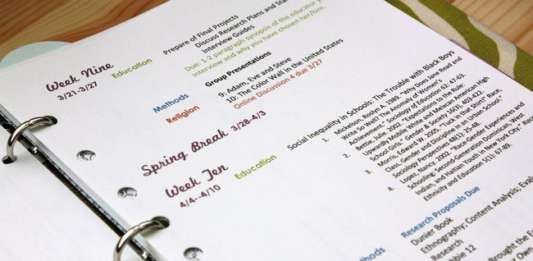 Prepare of Final Projects
Discuss Research Plans and
Interview Guides
Due: 1-2 paragraph synopsis of the educator
interview and why you have chosen her/him.
Week Nine
3/21-3/27
Education
Group Presentations
Methods
9: Adam, Eve and Steve
10: The Color Wall in the United States
Religion
Online Discussion 4 due 3/27
Spring Break 3/28-4/3
Week Ten
4/4-4/10
Education
Social Inequality in Schools: The Trouble with Black Boys
1. Mickelson, Roslyn A. 1989. "Why Does Jane Read and
Write So Well? The Anomaly of Women's
Achievement." Sociology of Education 62: 47-63.
2. Bettie, Julie. 2002. "Exceptions to the Rule:
Upwardly Mobile White and Mexican American High
School Girls." Gender & Society 16(3): 403-422.
3. Morris, Edward W. 2005. "Tuck in that Shirt!" Race,
Class, Gender and Discipline in an Urban School."
Sociological Perspectives 48(1): 25-48.
4. Lopez, Nancy. 2002. "Race-Gender Experiences and
Schooling: Second-Generation Dominican, West
Indian, and Haitian Youth in New York City."
Ethnicity and Education 5(1): 67-89.
Research Proposals Due
Methods
Dunier Book
Ethnography; Content Analysis;
Research